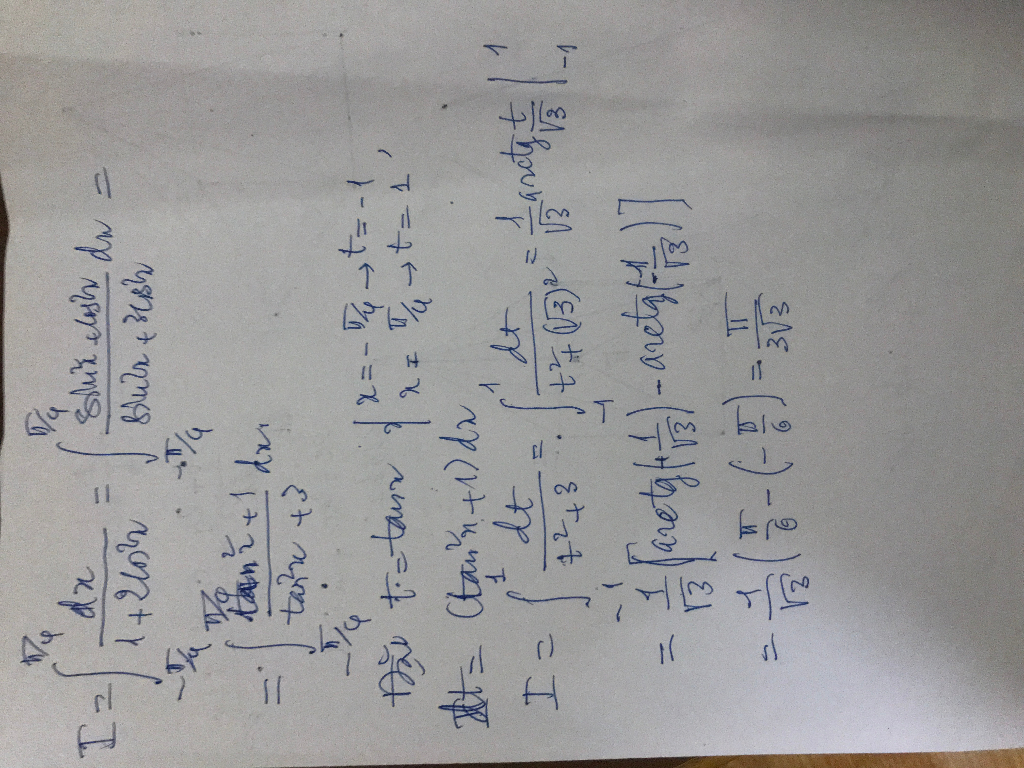 I = ∫_{-π/4}^{π/4} dx / (1 + 2cos²x) = ∫_{-π/4}^{π/4} (sin²x + cos²x) / (sin²x + 3cos²x) dx =
= ∫_{-π/4}^{π/4} (tan²x + 1) / (tan²x + 3) dx,
Đặt t = tanx | x = -π/4 → t = -1
x = π/4 → t = 1,
dt = (tan²x + 1) dx
I = ∫_{-1}^{1} dt / (t² + 3) = ∫_{-1}^{1} dt / (t² + (√3)²) = 1/√3 arctg t/√3 |_{-1}^{1}
= 1/√3 [arctg(+1/√3) - arctg(-1/√3)]
= 1/√3 (π/6 - (-π/6)) = π/(3√3)